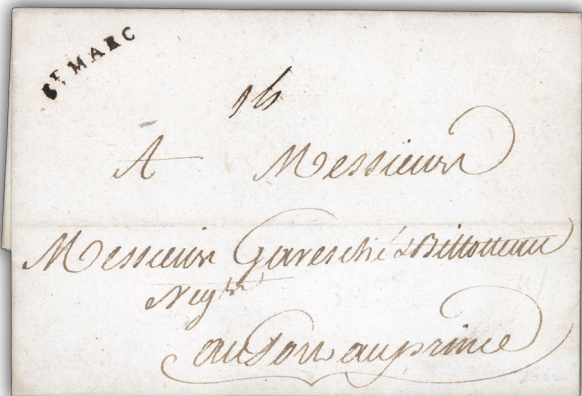 ST MARC
16
A Messieurs
Messieurs Garesché & Billotteau
Negts
au Port au prince